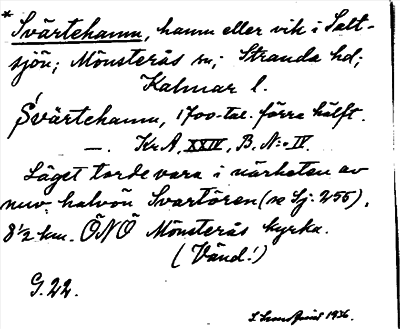 * Svärtehamn, hamn eller vik i Salt-
sjön; Mönsterås sn; Stranda hd;
Kalmar l.
Svärtehamn, 1700-tal. förra hälft.
—. Kr A, XXIV, B, N:o IV.
Läget torde vara i närheten av
nuv. halvön Svartören (se Sj. 255),
8 1/2 km. ÖNÖ Mönsterås kyrka.
(Vänd!)
G. 22.
1936.